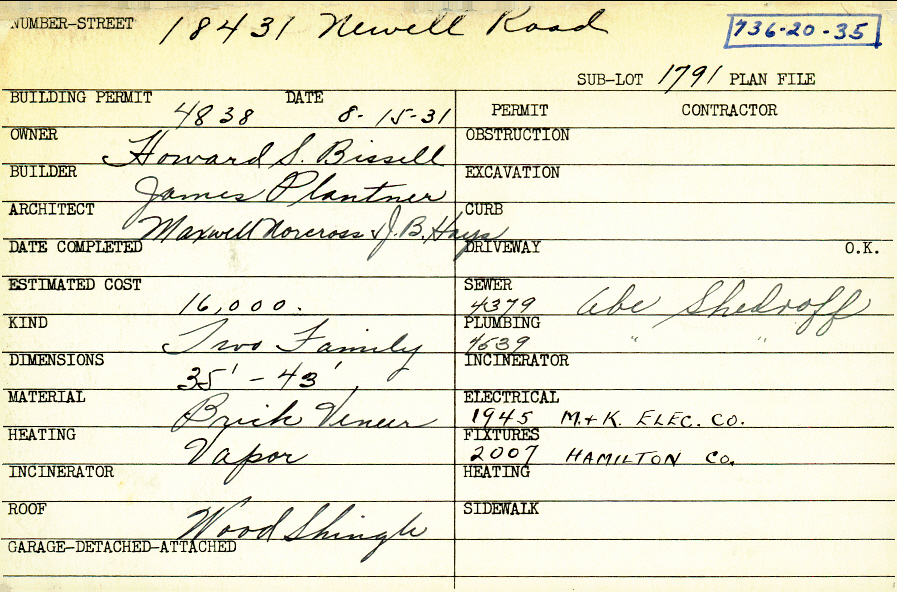 NUMBER-STREET 18431 Newell Road 736-20-35
SUB-LOT 1791 PLAN FILE
BUILDING PERMIT 4838 DATE 8-15-31
PERMIT CONTRACTOR
OWNER Howard S. Bissell
OBSTRUCTION
BUILDER James Plantner
EXCAVATION
ARCHITECT Maxwell Norcross & J.B. Hays
CURB
DATE COMPLETED
DRIVEWAY O.K.
ESTIMATED COST 16,000.
SEWER 4379 Abe Shedroff
KIND Two Family
PLUMBING 4639 " "
DIMENSIONS 35' - 43'
INCINERATOR
MATERIAL Brick Veneer
ELECTRICAL 1945 M.+K. ELEC. CO.
HEATING Vapor
FIXTURES 2007 HAMILTON CO.
INCINERATOR
HEATING
ROOF Wood Shingle
SIDEWALK
GARAGE-DETACHED-ATTACHED